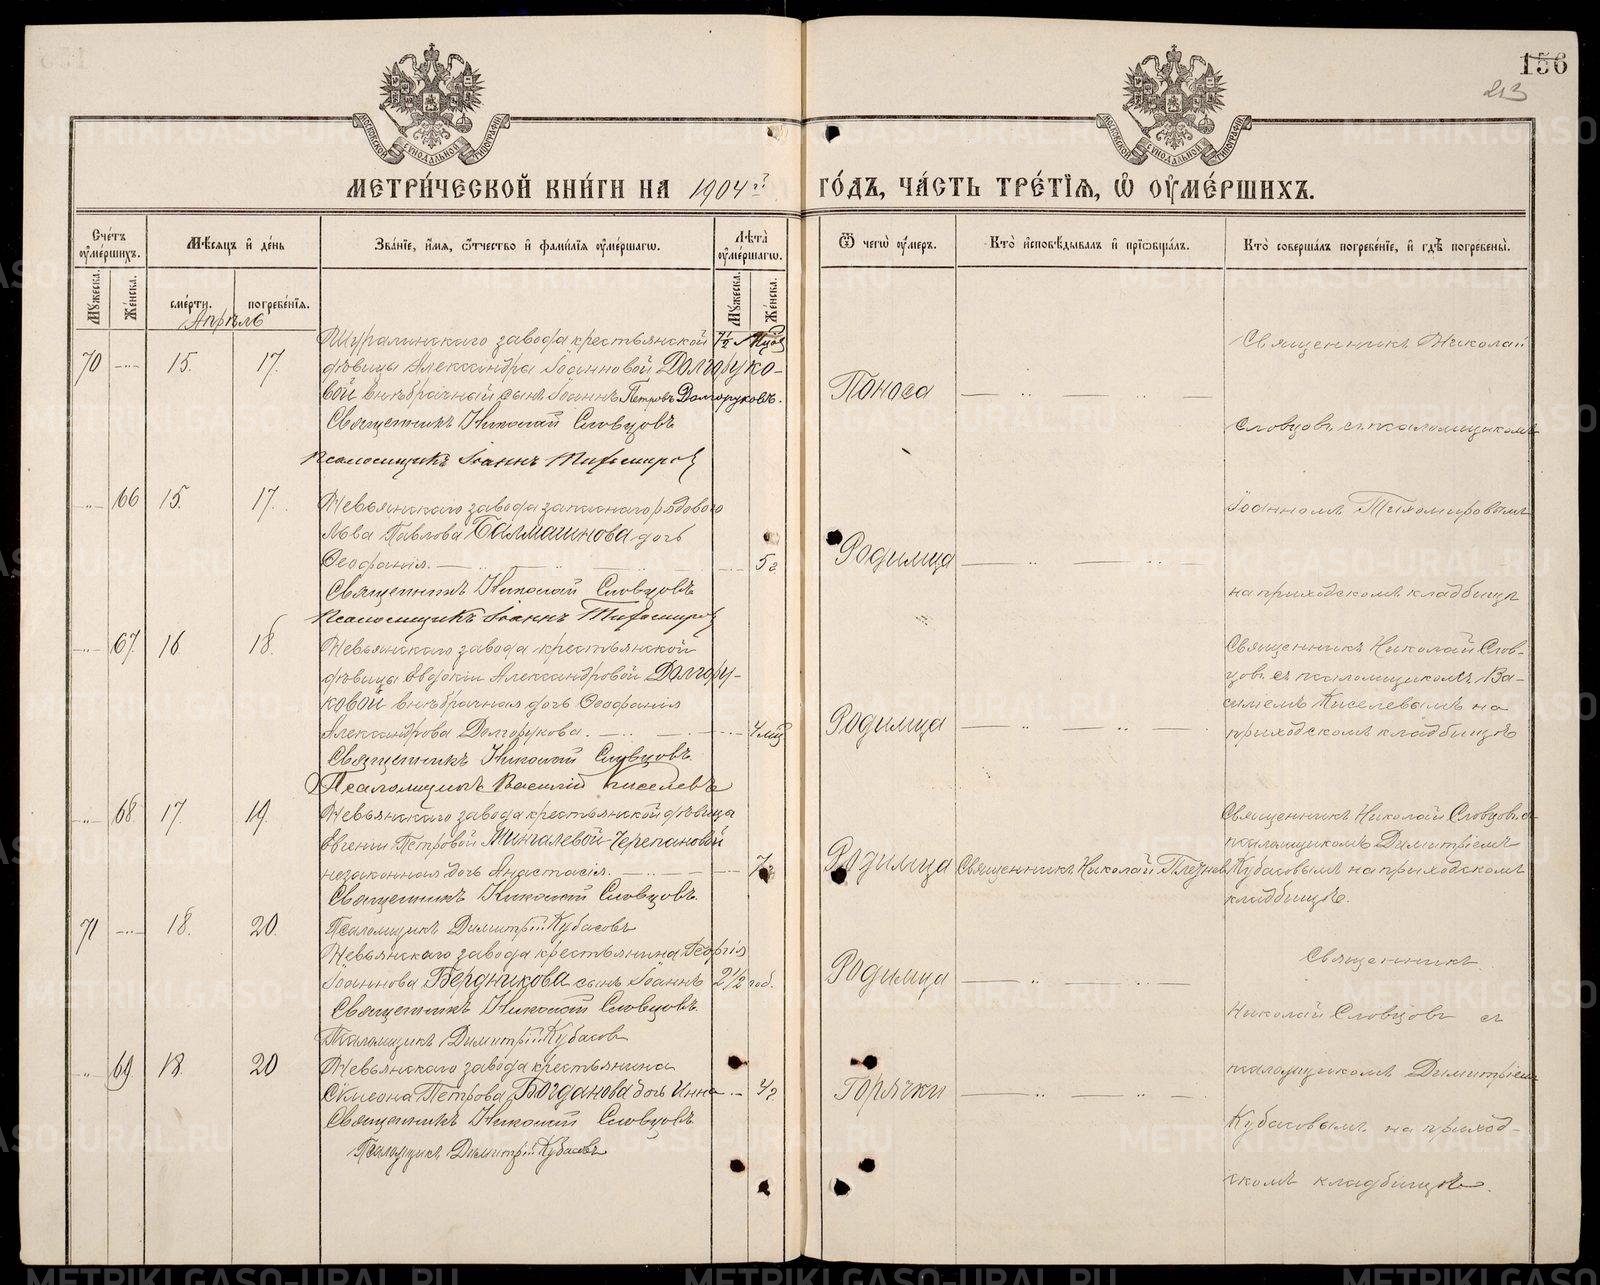 156
213
МОСКОВСКОЙ СѴНОДАЛЬНОЙ ТИПОГРАФІИ
МОСКОВСКОЙ СѴНОДАЛЬНОЙ ТИПОГРАФІИ
МЕТРИ́ЧЕСКОЙ КНИ́ГИ НА 1904 го́дъ, ча́сть тре́тїѧ, ѿ ᲂу҆ме́ршихъ.
Сче́тъ ᲂу҆ме́ршихъ.
Мѣ́сяцъ и҆ де́нь
Зва́нїе, и҆́мя, ѻ҆́тчество и҆ фами́лїя ᲂу҆ме́ршагѡ.
Лѣ́та ᲂу҆ме́ршагѡ.
Ѿ чегѡ̀ ᲂу҆́меръ.
Кто̀ и҆сповѣ́дывалъ и҆ прїѡбща́лъ.
Кто̀ соверша́лъ погребе́нїе, и҆ гдѣ̀ погребены̀.
Мꙋ́жеска.
Же́нска.
сме́рти.
погребе́нїя.
Мꙋ́жеска.
Же́нска.
Апрѣль
70 15. 17.
Шуралинскаго завода крестьянской
дѣвицы Александры Іоанновой Долгоруко-
вой внѣбрачный сынъ Іоаннъ Петровъ Долгоруковъ.
Священникъ Николай Словцовъ
Псаломщикъ Іоаннъ Тихомировъ
Поноса
Священникъ Николай
Словцовъ съ псаломщикомъ
Іоанномъ Тихомировымъ
на приходскомъ кладбищѣ
66 15. 17.
Невьянскаго завода запаснаго рядового
Льва Павлова Балмашнова дочь
Ѳеофанія. 5 г
Священникъ Николай Словцовъ
Псаломщикъ Іоаннъ Тихомировъ
Родимца
67 16. 18.
Невьянскаго завода крестьянской
дѣвицы Евдокіи Александровой Долгору-
ковой внѣбрачная дочь Ѳеофанія
Александрова Долгорукова. 4 мѣс
Священникъ Николай Словцовъ
Псаломщикъ Василій Киселевъ
Родимца
Священникъ Николай Слов-
цовъ съ псаломщикомъ Ва-
силіемъ Киселевымъ на
приходскомъ кладбищѣ
68 17. 19.
Невьянскаго завода крестьянской дѣвицы
Евгеніи Петровой Мингалевой-Черепановой
незаконная дочь Анастасія.
Священникъ Николай Словцовъ.
Псаломщикъ Димитрій Кубасовъ
Родимца
Священникъ Николай
Священникъ Николай Словцовъ съ
псаломщикомъ Димитріемъ
Кубасовымъ на приходскомъ
кладбищѣ.
71 18. 20.
Невьянскаго завода крестьянина Георгія
Іоаннова Бердникова сынъ Іоаннъ 2½ год.
Священникъ Николай Словцовъ.
Псаломщикъ Димитрій Кубасовъ
Родимца
Священникъ
Николай Словцовъ съ
псаломщикомъ Димитріемъ
Кубасовымъ на приход-
скомъ кладбищѣ.
69 18. 20
Невьянскаго завода крестьянина
Симеона Петрова Богданова дочь Инна
Священникъ Николай Словцовъ
Псаломщикъ Димитрій Кубасовъ
Горячки
METRIKI.GASO-URAL.RU